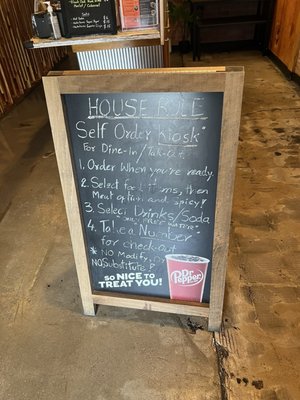 HOUSE RULE
Self Order Kiosk*
For Dine-In/Take-Out
1. Order When you're ready.
2. Select food items, then
Meat option and spicy!
3. Select Drinks/Soda
4. Take a Number
for check-out
* NO Modify
NO Substitute!
Dr Pepper
SO NICE TO
TREAT YOU!